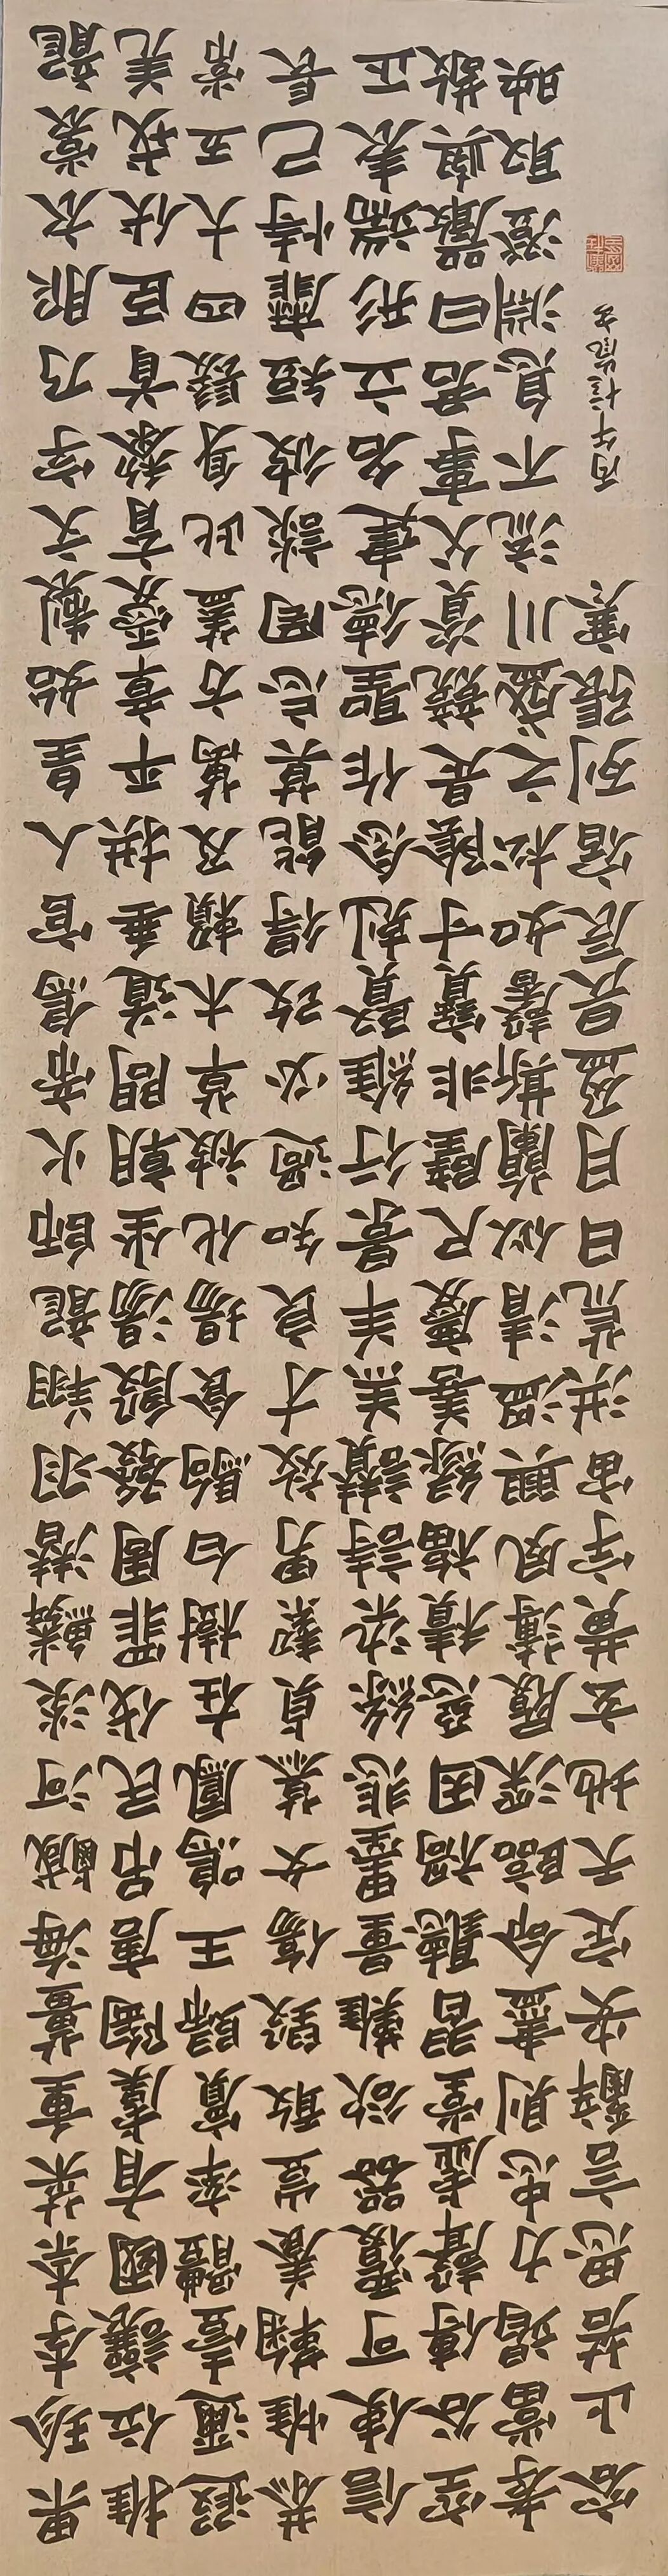 果珍李柰菜重薑海鹹河淡鱗潛羽翔龍師火帝鳥官人皇始制文字乃服衣裳龍
推位讓國有虞陶唐吊民伐罪周發殷湯坐朝問道垂拱平章愛育黎首臣伏戎羌
遐邇壹體率賓歸王鳴鳳在樹白駒食場化被草木賴及萬方蓋此身髮四大五常
恭惟鞠養豈敢毀傷女慕貞絜男效才良知過必改得能莫忘罔談彼短靡恃己長
信使可覆器欲難量墨悲絲染詩讚羔羊景行維賢剋念作聖德建名立形端表正
空谷傳聲虛堂習聽禍因惡積福緣善慶尺璧非寶寸陰是競資父事君曰嚴與敬
孝當竭力忠則盡命臨深履薄夙興溫清似蘭斯馨如松之盛川流不息淵澄取映
容止若思言辭安定天地玄黃宇宙洪荒日月盈昃辰宿列張寒
丙午書